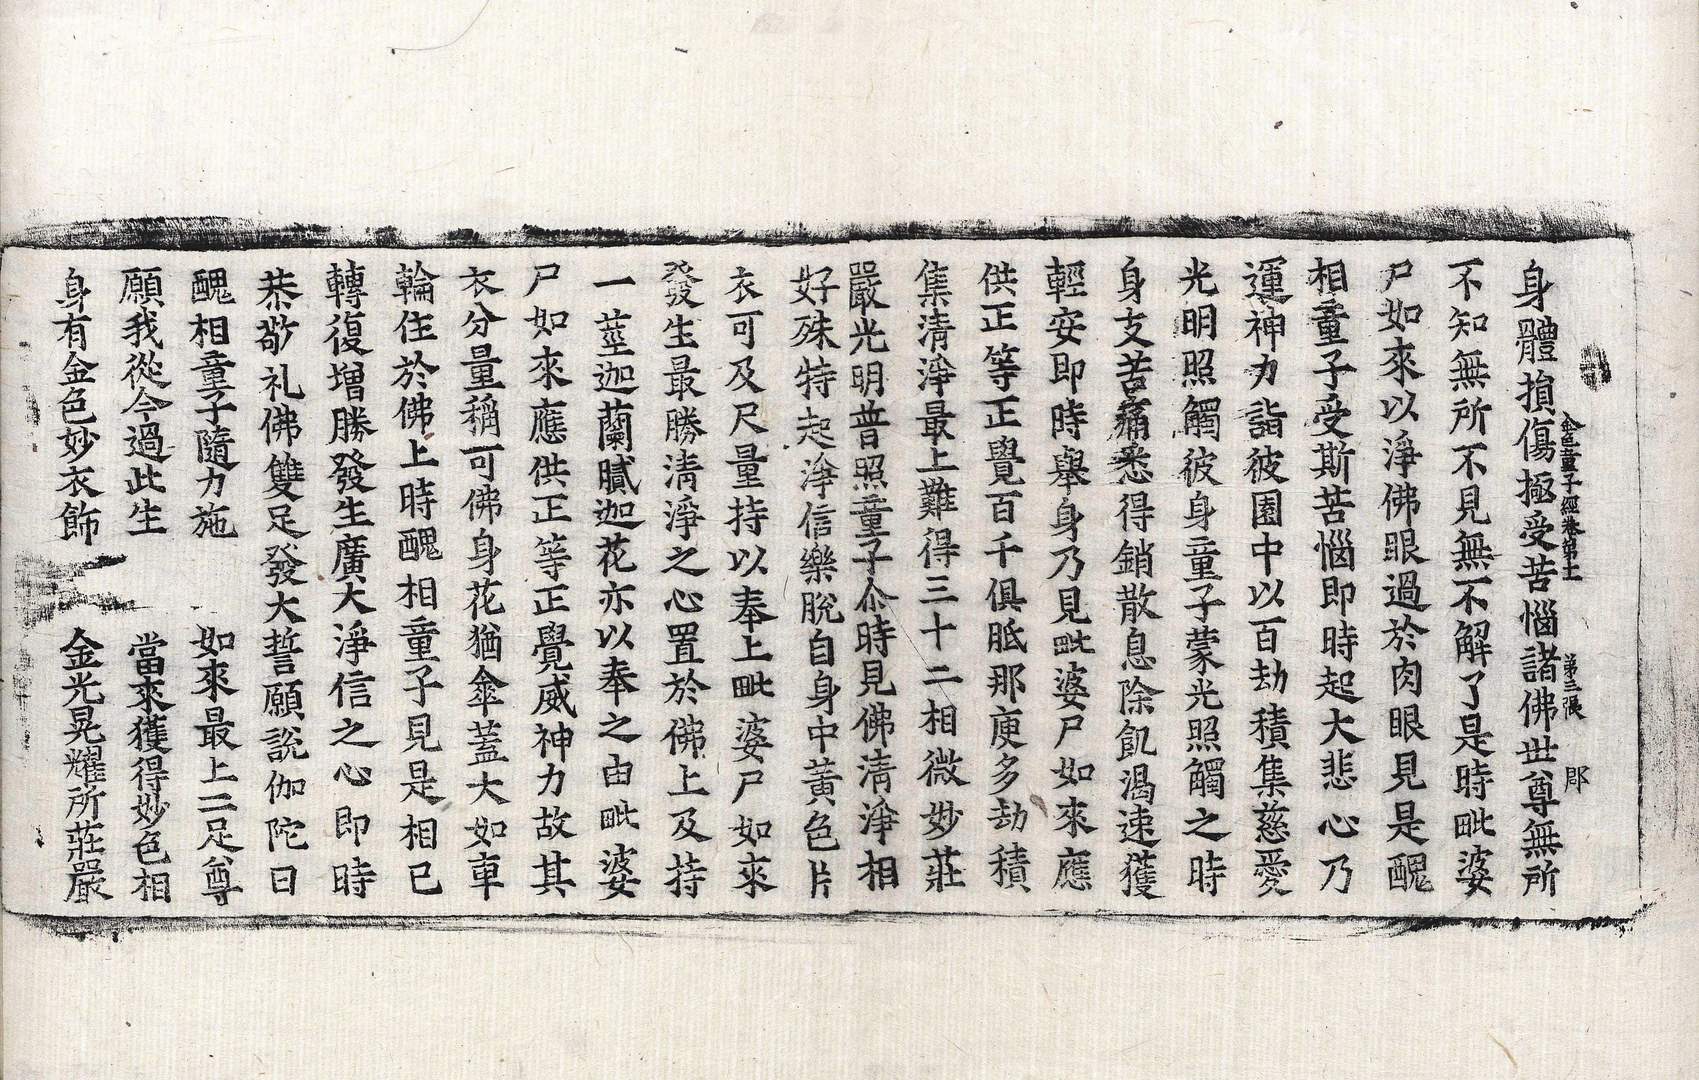 金色童子經卷第十二 第三張 郡
身體損傷極受苦惱諸佛世尊無所
不知無所不見無不解了是時毗婆
尸如來以淨佛眼過於肉眼見是醜
相童子受斯苦惱即時起大悲心乃
運神力詣彼園中以百劫積集慈愛
光明照觸彼身童子蒙光照觸之時
身支苦痛悉得銷散息除飢渴速獲
輕安即時舉身乃見毗婆尸如來應
供正等正覺百千俱胝那庾多劫積
集清淨最上難得三十二相微妙莊
嚴光明普照童子尒時見佛清淨相
好殊特起淨信樂脫自身中黃色片
衣可及尺量持以奉上毗婆尸如來
發生最勝清淨之心置於佛上及持
一莖迦蘭膩迦花亦以奉之由毗婆
尸如來應供正等正覺威神力故其
衣分量稱可佛身花猶傘蓋大如車
輪住於佛上時醜相童子見是相已
轉復增勝發生廣大淨信之心即時
恭敬礼佛雙足發大誓願說伽陀曰
醜相童子隨力施 如來最上二足尊
願我從今過此生 當來獲得妙色相
身有金色妙衣飾 金光晃耀所莊嚴